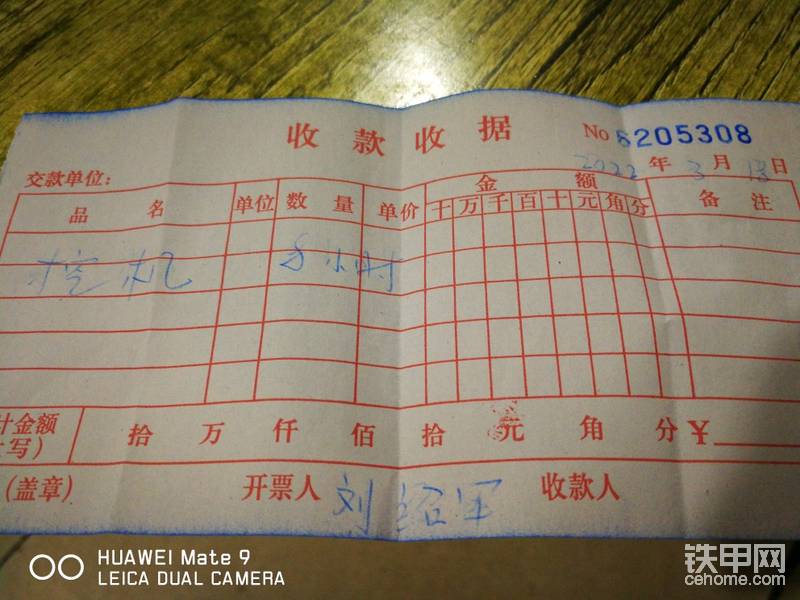 收款收据 No 6205308
交款单位: 2022年3月18日
品名 单位 数量 单价 金额 备注
十万千百十元角分
挖机 小时
计金额 拾万仟佰拾元角分 ¥
写)
(盖章) 开票人 刘绍军 收款人
HUAWEI Mate 9
LEICA DUAL CAMERA
铁甲网
cehome.com